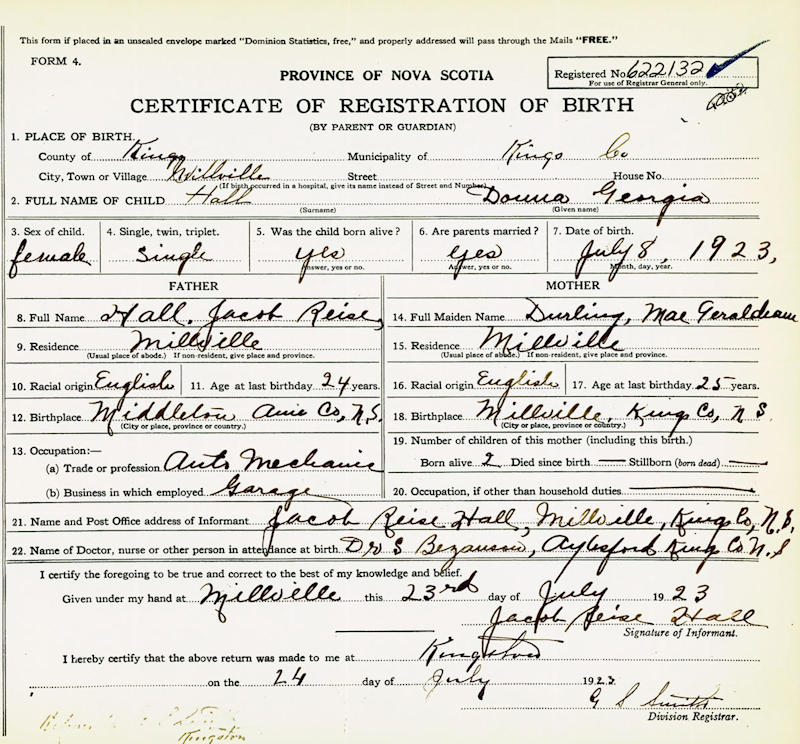 This form if placed in an unsealed envelope marked "Dominion Statistics, free," and properly addressed will pass through the Mails "FREE."
FORM 4.
Registered No. 622132
For use of Registrar General only.
PROVINCE OF NOVA SCOTIA
CERTIFICATE OF REGISTRATION OF BIRTH
(BY PARENT OR GUARDIAN)
1. PLACE OF BIRTH.
County of Kings Municipality of Kings Co
City, Town or Village Millville Street House No.
(If birth occurred in a hospital, give its name instead of Street and Number)
2. FULL NAME OF CHILD Hall Donna Georgia
(Surname) (Given name)
3. Sex of child. 4. Single, twin, triplet. 5. Was the child born alive? 6. Are parents married? 7. Date of birth.
female Single yes yes July 8, 1923,
Answer, yes or no. Answer, yes or no. Month, day, year.
FATHER MOTHER
8. Full Name Hall, Jacob Reise, 14. Full Maiden Name Durling, Mae Geraldeane
9. Residence Millville 15. Residence Millville
(Usual place of abode.) If non-resident, give place and province. (Usual place of abode.) If non-resident, give place and province.
10. Racial origin English 11. Age at last birthday 24 years. 16. Racial origin English 17. Age at last birthday 25 years.
12. Birthplace Middleton Ann Co, N.S. 18. Birthplace Millville, Kings Co, N S.
(City or place, province or country.) (City or place, province or country.)
13. Occupation:— 19. Number of children of this mother (including this birth.)
(a) Trade or profession Auto Mechanic Born alive 2 Died since birth — Stillborn (born dead) —
(b) Business in which employed Garage 20. Occupation, if other than household duties
21. Name and Post Office address of Informant Jacob Reise Hall, Millville, Kings Co, N.S.
22. Name of Doctor, nurse or other person in attendance at birth. Dr S Bezanson, Aylesford King Co N.S
I certify the foregoing to be true and correct to the best of my knowledge and belief.
Given under my hand at Millville this 23rd day of July 1923
Jacob Reise Hall
Signature of Informant.
I hereby certify that the above return was made to me at Kingston
on the 24 day of July 1923.
G S Smith
Division Registrar.
Kingston